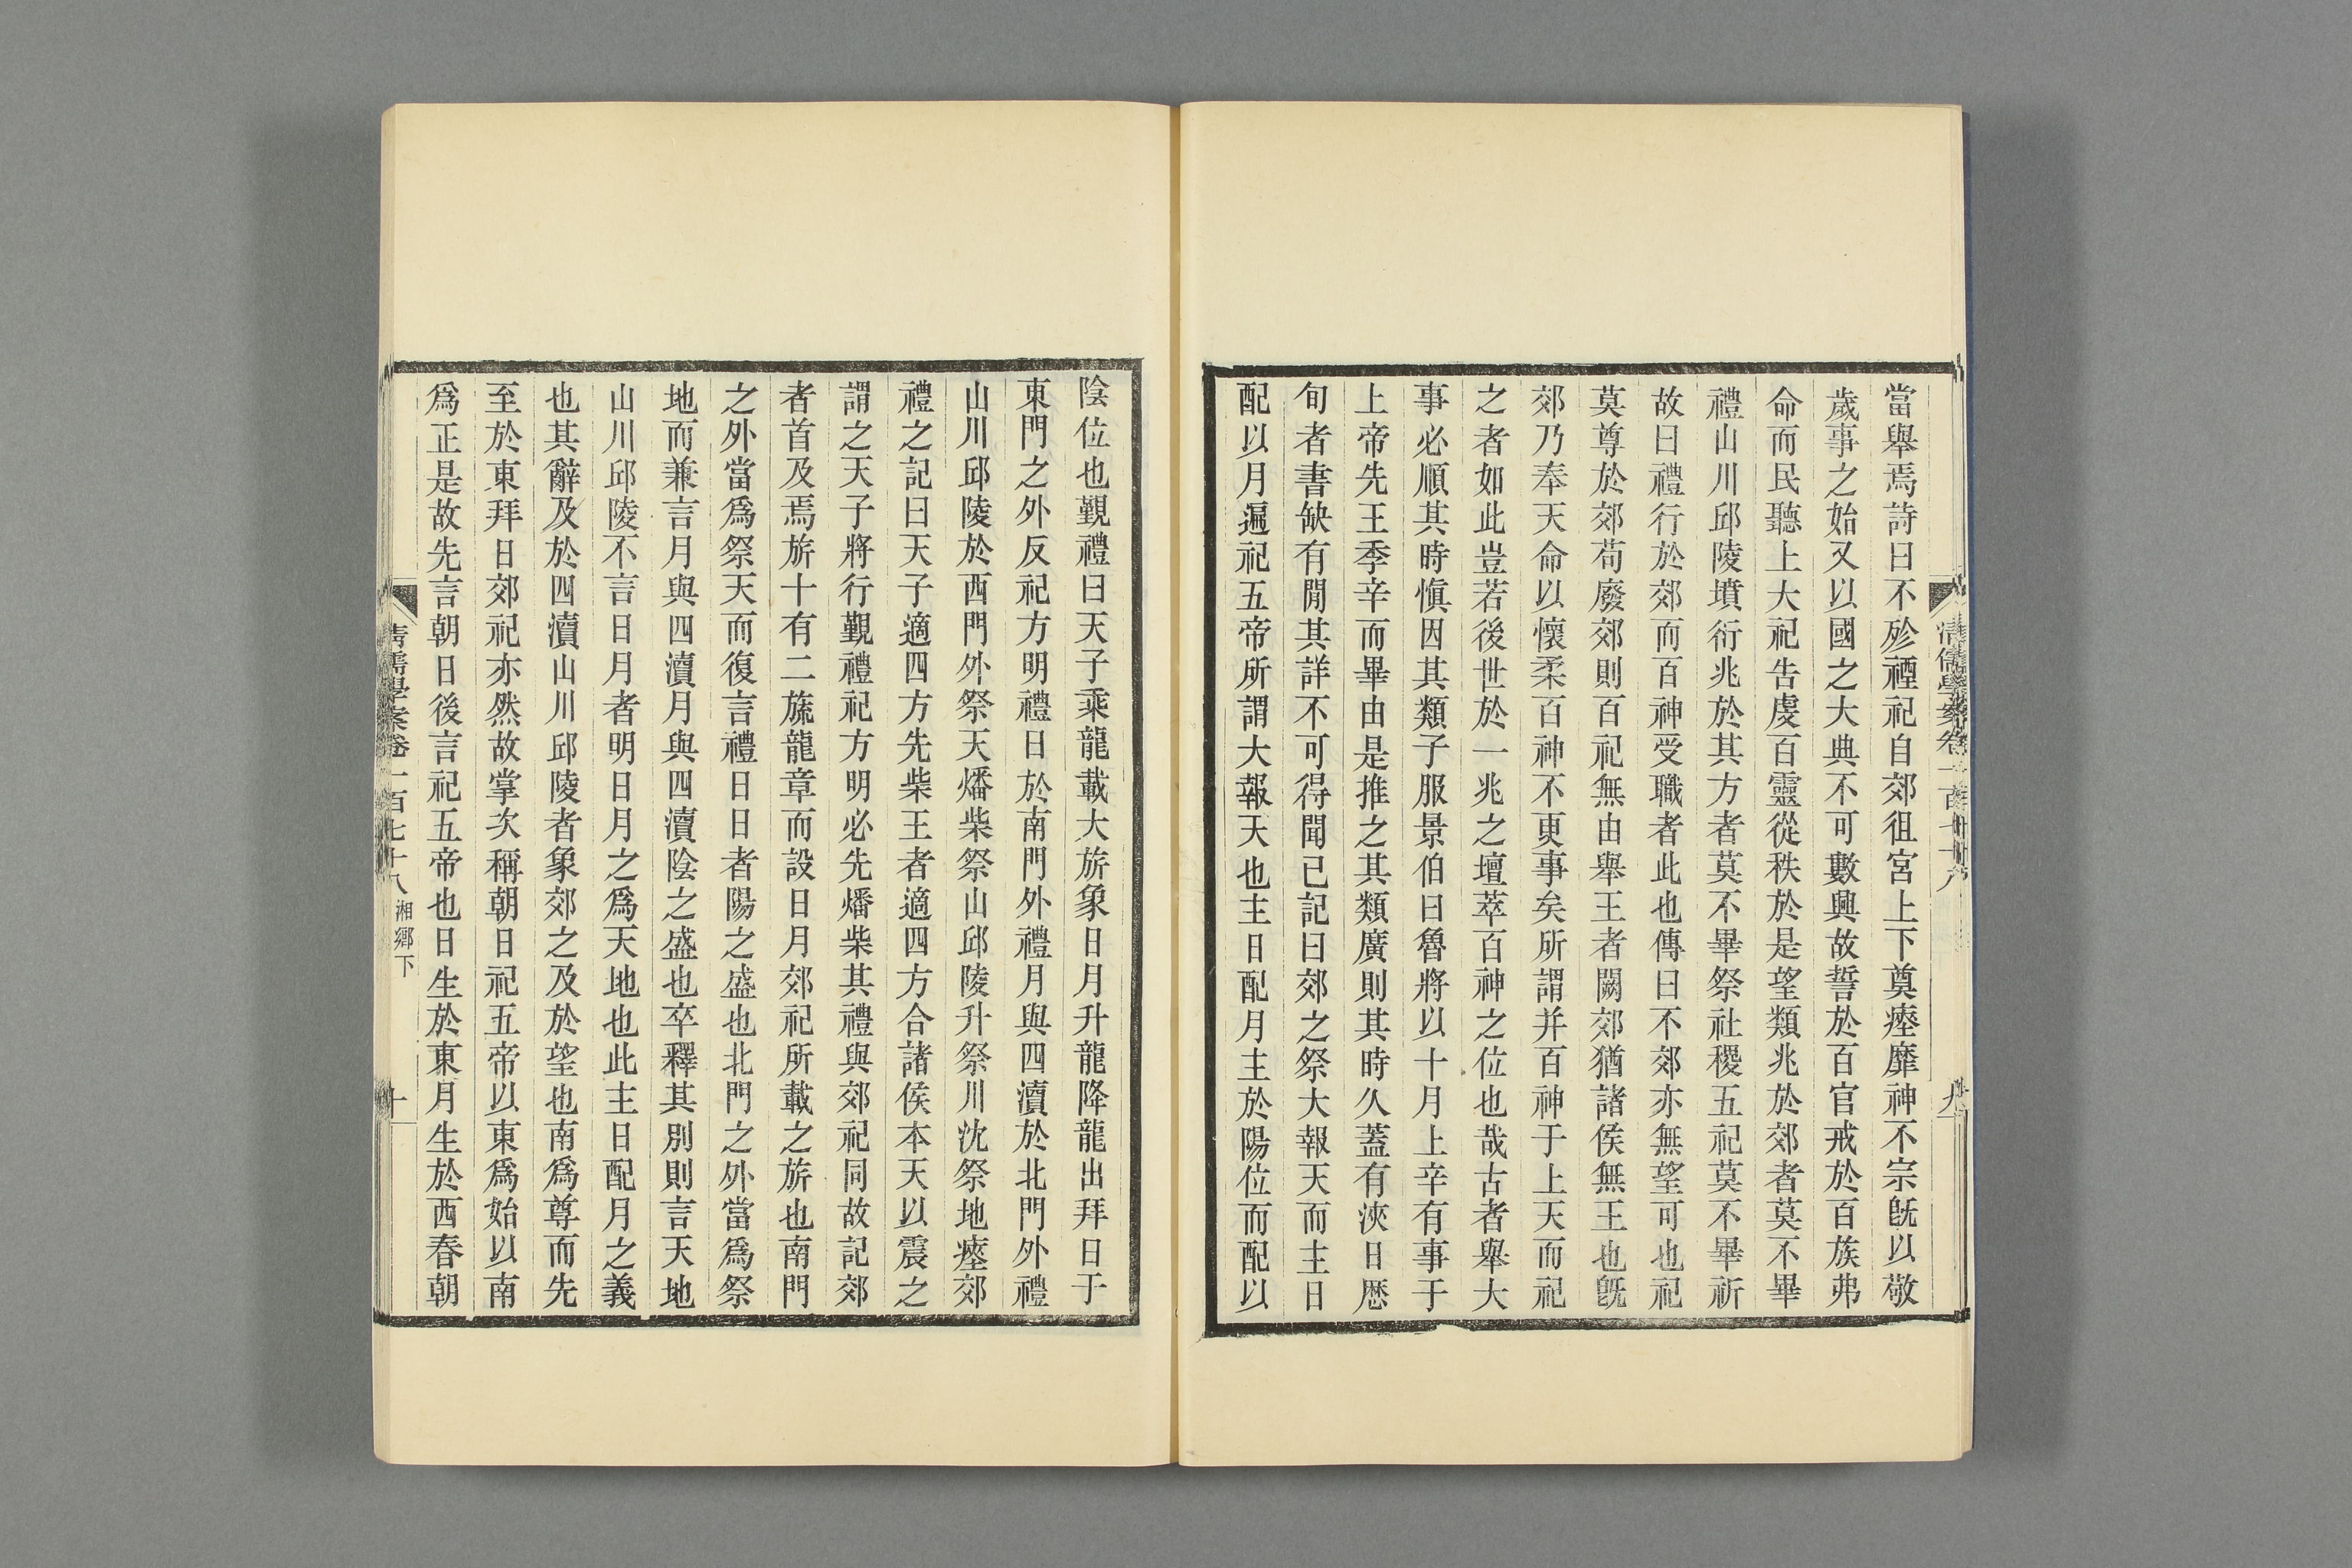 當舉焉詩曰不殄禋祀自郊徂宮上下奠瘞靡神不宗旣以敬
歲事之始又以國之大典不可數興故誓於百官戒於百族弗
命而民聽上大祀告虔百靈從秩於是望類兆於郊者莫不畢
禮山川邱陵墳衍兆於其方者莫不畢祭社稷五祀莫不畢祈
故曰禮行於郊而百神受職者此也傳曰不郊亦無望可也祀
莫尊於郊苟廢郊則百祀無由舉王者闕郊猶諸侯無王也旣
郊乃奉天命以懷柔百神不更事矣所謂并百神于上天而祀
之者如此豈若後世於一兆之壇萃百神之位也哉古者舉大
事必順其時愼因其類子服景伯曰魯將以十月上辛有事于
上帝先王季辛而畢由是推之其類廣則其時久蓋有浹日歷
旬者書缺有閒其詳不可得聞已記曰郊之祭大報天而主日
配以月遍祀五帝所謂大報天也主日配月主於陽位而配以
陰位也覲禮曰天子乘龍載大旂象日月升龍降龍出拜日于
東門之外反祀方明禮日於南門外禮月與四瀆於北門外禮
山川邱陵於西門外祭天燔柴祭山邱陵升祭川沈祭地瘞郊
禮之記曰天子適四方先柴王者適四方合諸侯本天以震之
謂之天子將行覲禮祀方明必先燔柴其禮與郊祀同故記郊
者首及焉旂十有二旒龍章而設日月郊祀所載之旂也南門
之外當爲祭天而復言禮日日者陽之盛也北門之外當爲祭
地而兼言月與四瀆月與四瀆陰之盛也卒釋其別則言天地
山川邱陵不言日月者明日月之爲天地也此主日配月之義
也其辭及於四瀆山川邱陵者象郊之及於望也南爲尊而先
至於東拜日郊祀亦然故掌次稱朝日祀五帝以東爲始以南
爲正是故先言朝日後言祀五帝也日生於東月生於西春朝
清儒學案卷一百七十八 湘鄉下 十